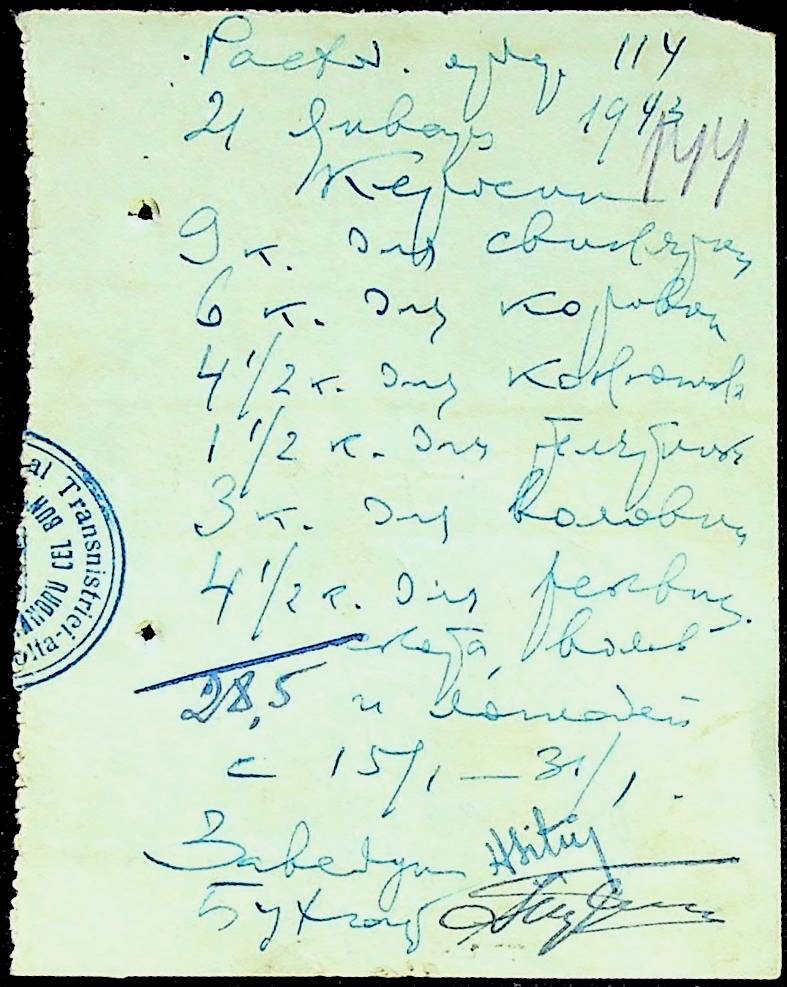 Расход. 114
21 Января 1943
144
Керосин
9 к. для свинарни
6 к. для коровни
4 1/2 к. для конюшни
1 1/2 к. для телятник
3 к. для воловни
4 1/2 к. для реквиз.
скота, волов
28,5 и лошадей
с 15/1 — 31/1.
Заведующ
Бухгалт
al Transnistriei
ANDRU CEL BUN
olta